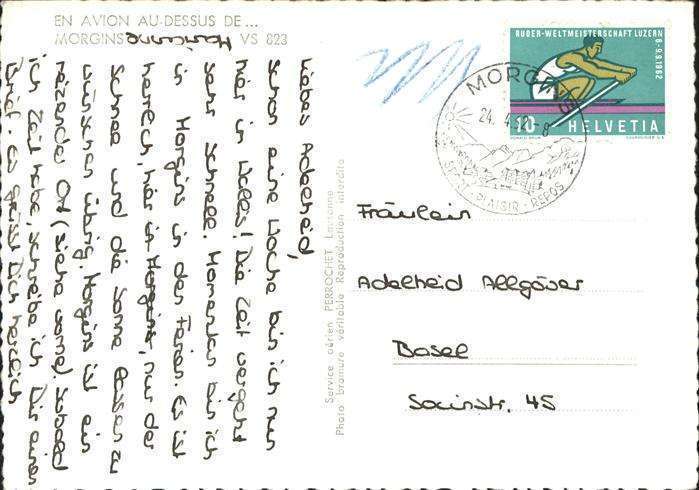 EN AVION AU-DESSUS DE ...
MORGINS VS 823
Liebes Adelheid,
Schon eine Woche bin ich nun
hier im Wallis! Die Zeit vergeht
sehr schnell. Momentan bin ich
in Morgins in den Ferien. Es ist
herrlich, hier in Morgins, nur der
Schnee und die Sonne lassen zu
wünschen übrig. Morgins ist ein
reizender Ort (siehe vorne) Sobald
ich Zeit habe, schreibe ich Dir einen
Brief. Es grüsst Dich herzlich
Marianne
Service aérien PERROCHET Lausanne
Photo bromure véritable Reproduction interdite
RUDER-WELTMEISTERSCHAFT LUZERN
6-9.9.1962
10 HELVETIA
MORGINS
24.4.62-8
PLAISIR - REPOS
Fräulein
Adelheid Allgöver
Basel
Socinstr. 45